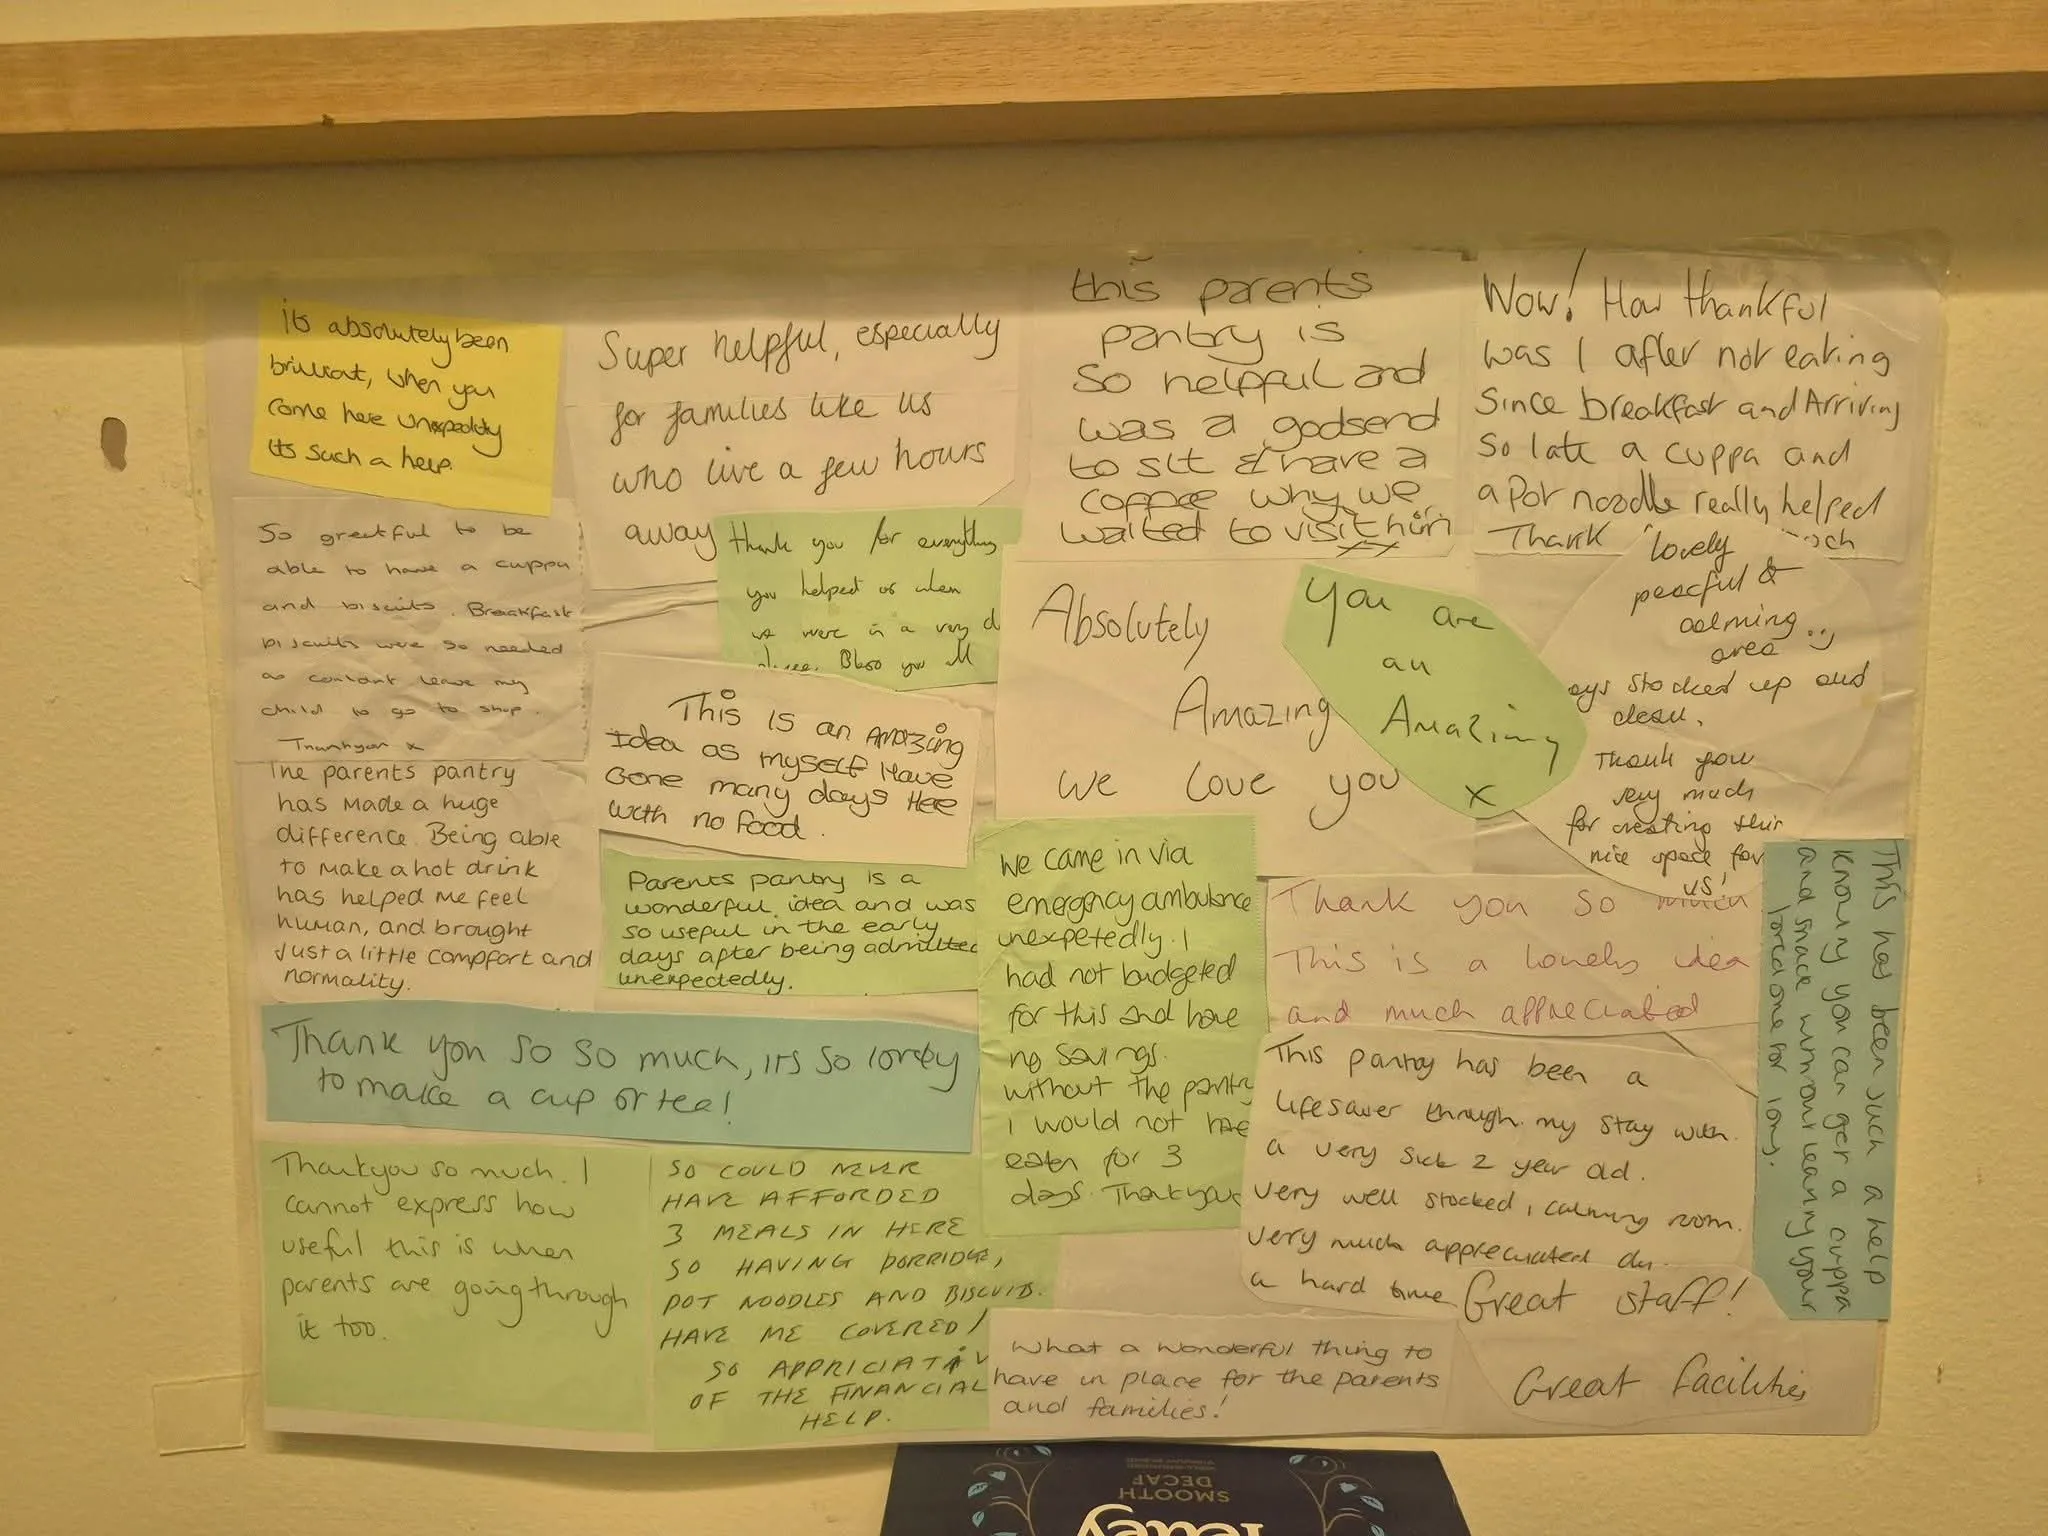 its absolutely been
brilliant, when you
come here unexpectedly
its such a help.
Super helpful, especially
for families like us
who live a few hours
away
this parents
pantry is
so helpful and
was a godsend
to sit & have a
coffee why we
waited to visit him
xx
Wow! How thankful
was I after not eating
Since breakfast and Arriving
So late a cuppa and
a Pot noodle really helped
Thank
So greatful to be
able to have a cuppa
and biscuits. Breakfast
biscuits were so needed
as couldnt leave my
child to go to shop.
Thankyou x
thank you for everything
you helped us when
we were in a very d
Bless you all
Absolutely
Amazing
we love you
You are
an
Amazing
x
lovely
peacful &
calming
area
ays stocked up and
clean.
Thank you
very much
for creating this
nice space for
us!
This is an amazing
Idea as myself Have
Gone many days Here
with no food.
The parents pantry
has made a huge
difference. Being able
to make a hot drink
has helped me feel
human, and brought
just a little compfort and
normality.
Parents pantry is a
wonderful idea and was
so useful in the early
days after being admitted
unexpectedly.
We came in via
emergency ambulance
unexpetedly. I
had not budgeted
for this and have
no savings.
without the pantry
I would not have
eaten for 3
days. Thankyou
Thank you so much
This is a lovely idea
and much appreciated
This has been such a help
Knowing you can get a cuppa
and snack without leaving your
loved one for long.
Thank you so so much, its so lovely
to make a cup of tea!
This pantry has been a
lifesaver through my stay with
a very sick 2 year old.
Very well stocked, calming room.
Very much appreciated du
a hard time
Thankyou so much. I
cannot express how
useful this is when
parents are going through
it too.
SO COULD NEVER
HAVE AFFORDED
3 MEALS IN HERE
SO HAVING PORRIDGE,
POT NOODLES AND BISCUITS.
HAVE ME COVERED!
SO APPRICIATIV
OF THE FINANCIAL
HELP.
What a wonderful thing to
have in place for the parents
and families!
Great staff!
Great facilities
SMOOTH
DECAF
Tetley